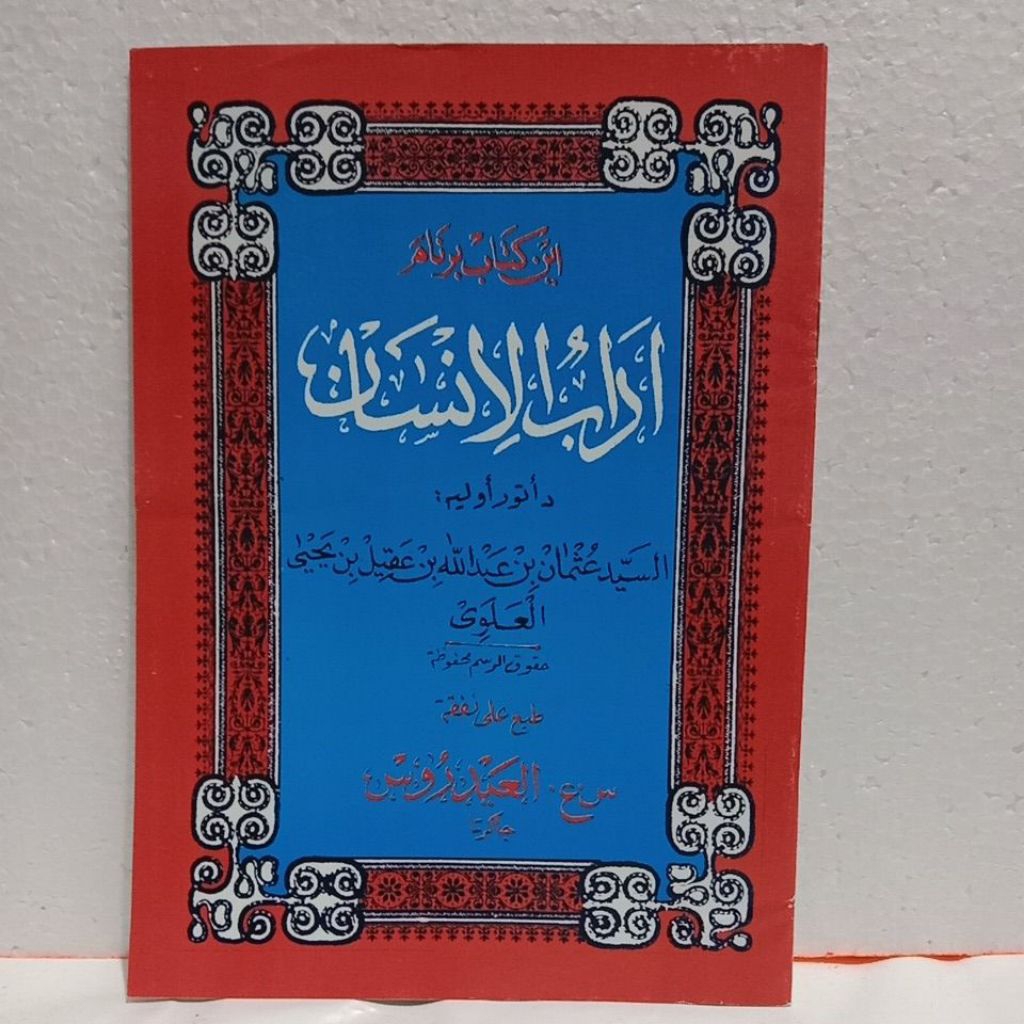 اين كتَابْ برنَامَ
ادَابُ الْاِنْسَان
د أتور أوليه :
السَيِّد عُثْمَانْ بِنْ عَبْدُ اللّٰه بِنْ عَقِيلْ بِنْ يَحْيٰى
الْعَلَوِىْ
حقوق الرسم محفوظة
طبع على نفقة
س . ع . العَيْدَرُوسْ
جاكرتا